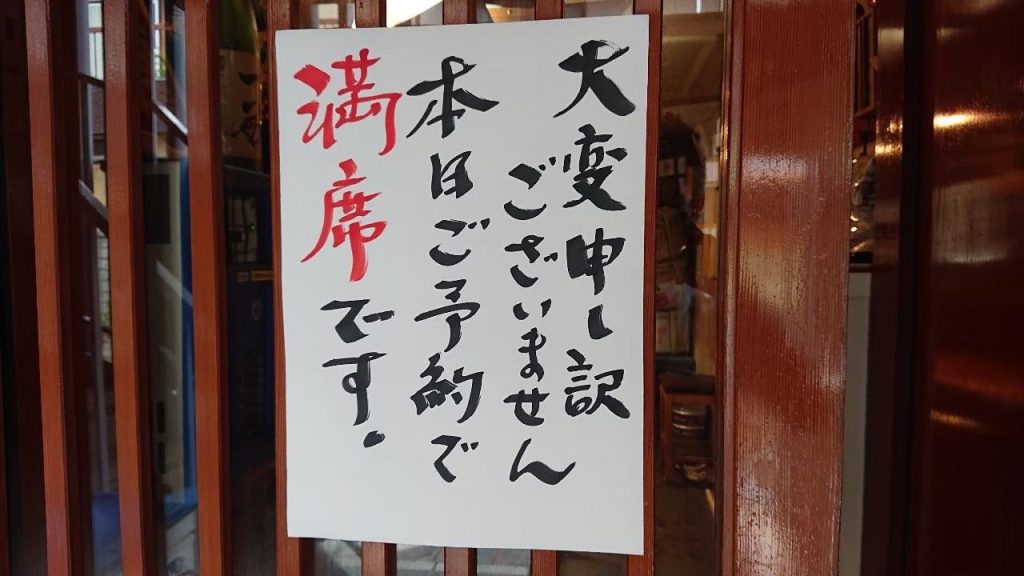 大変申し訳
ございません
本日ご予約で
満席です。